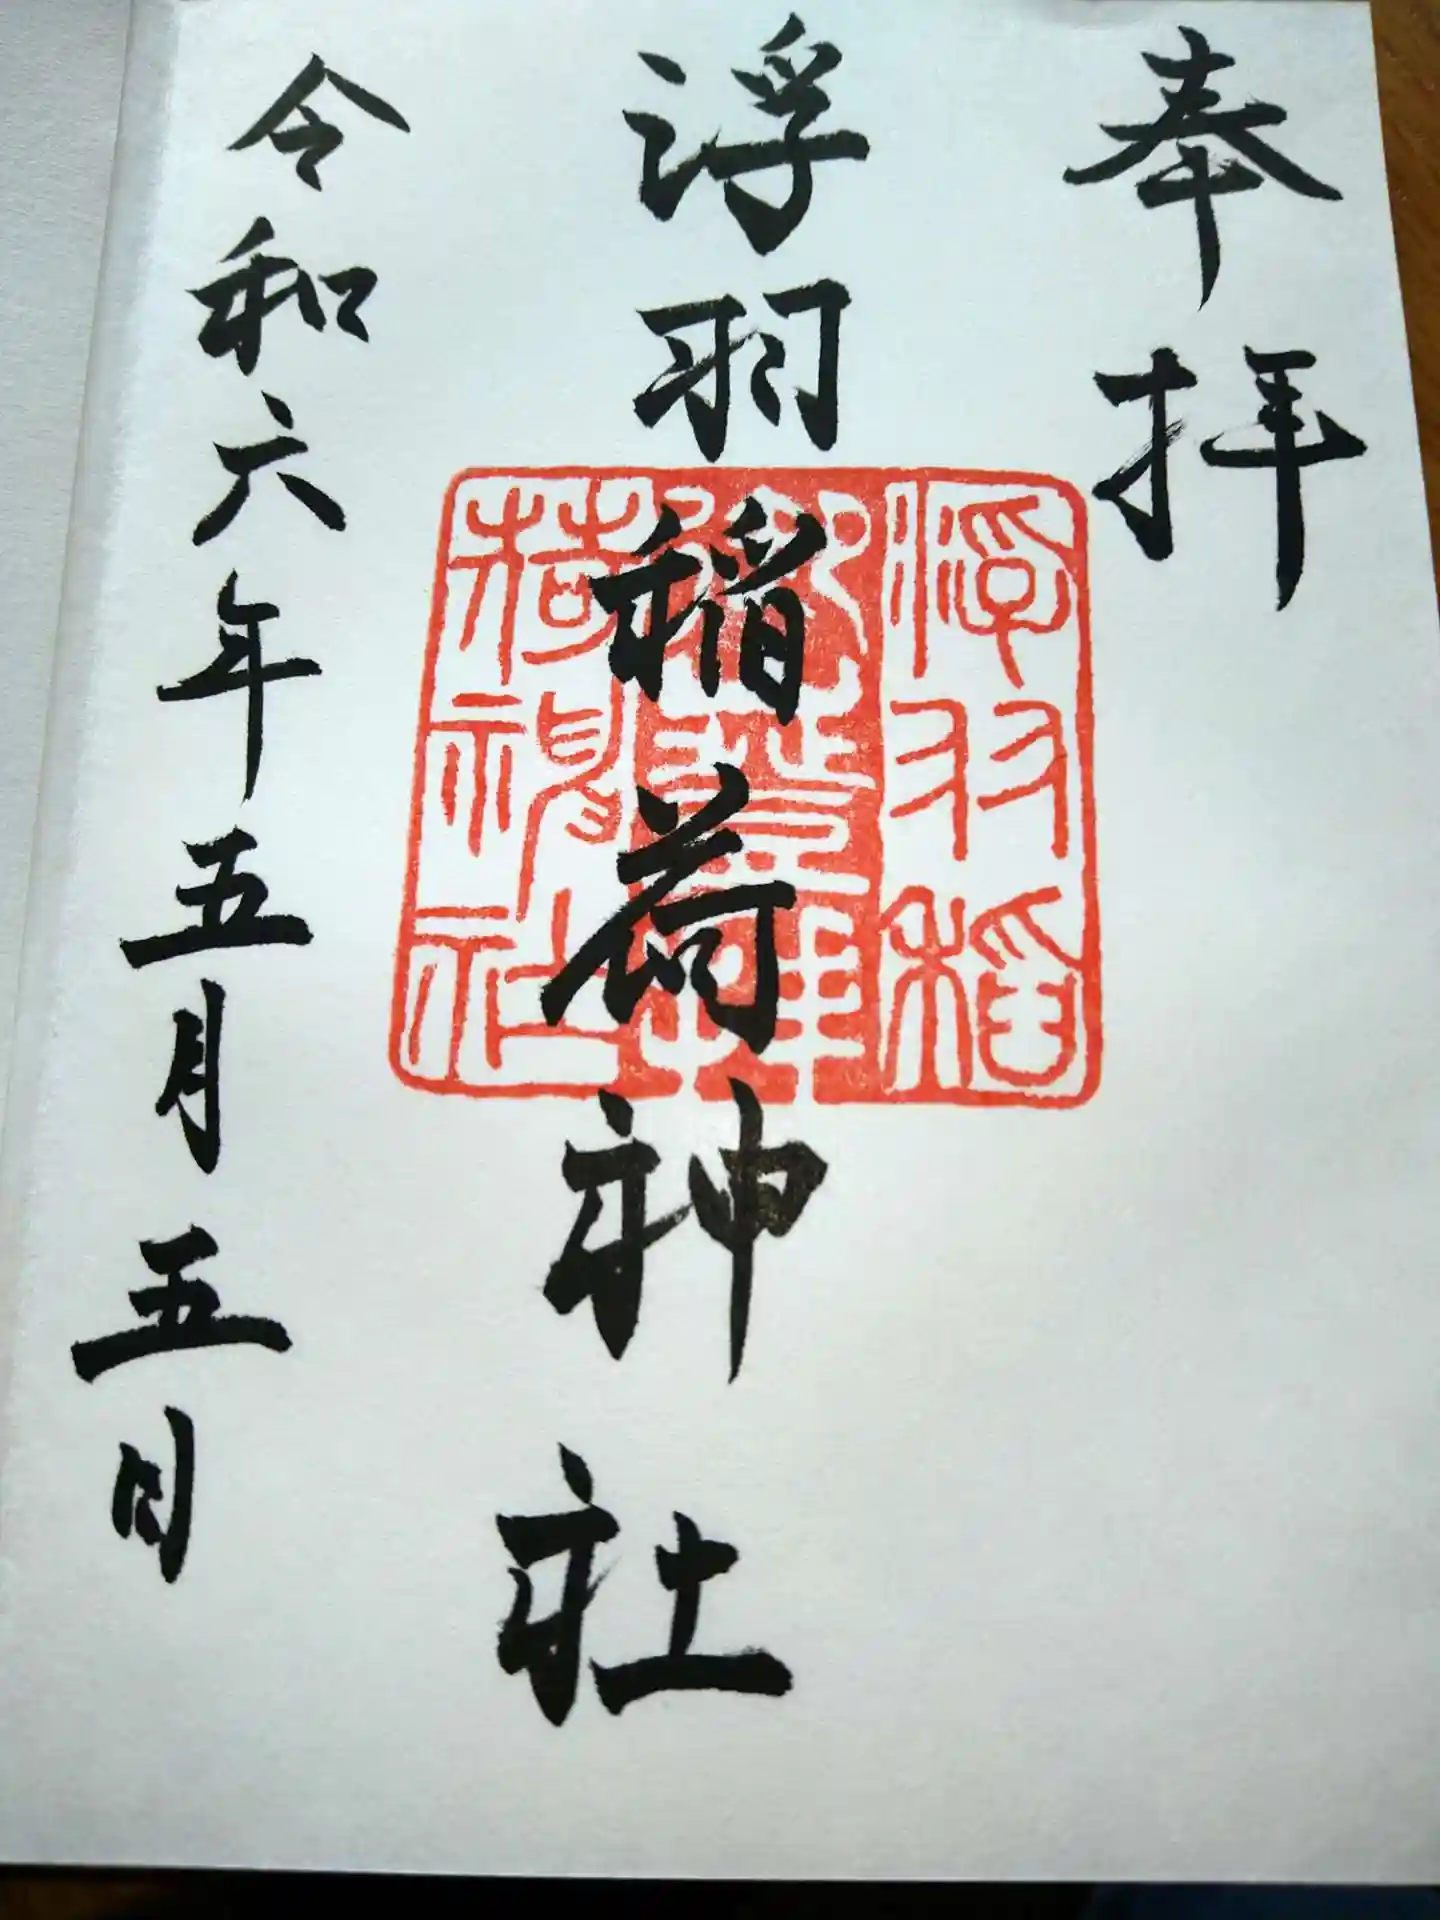 奉拝
浮羽稲荷神社
浮羽稲
荷神社
令和六年五月五日